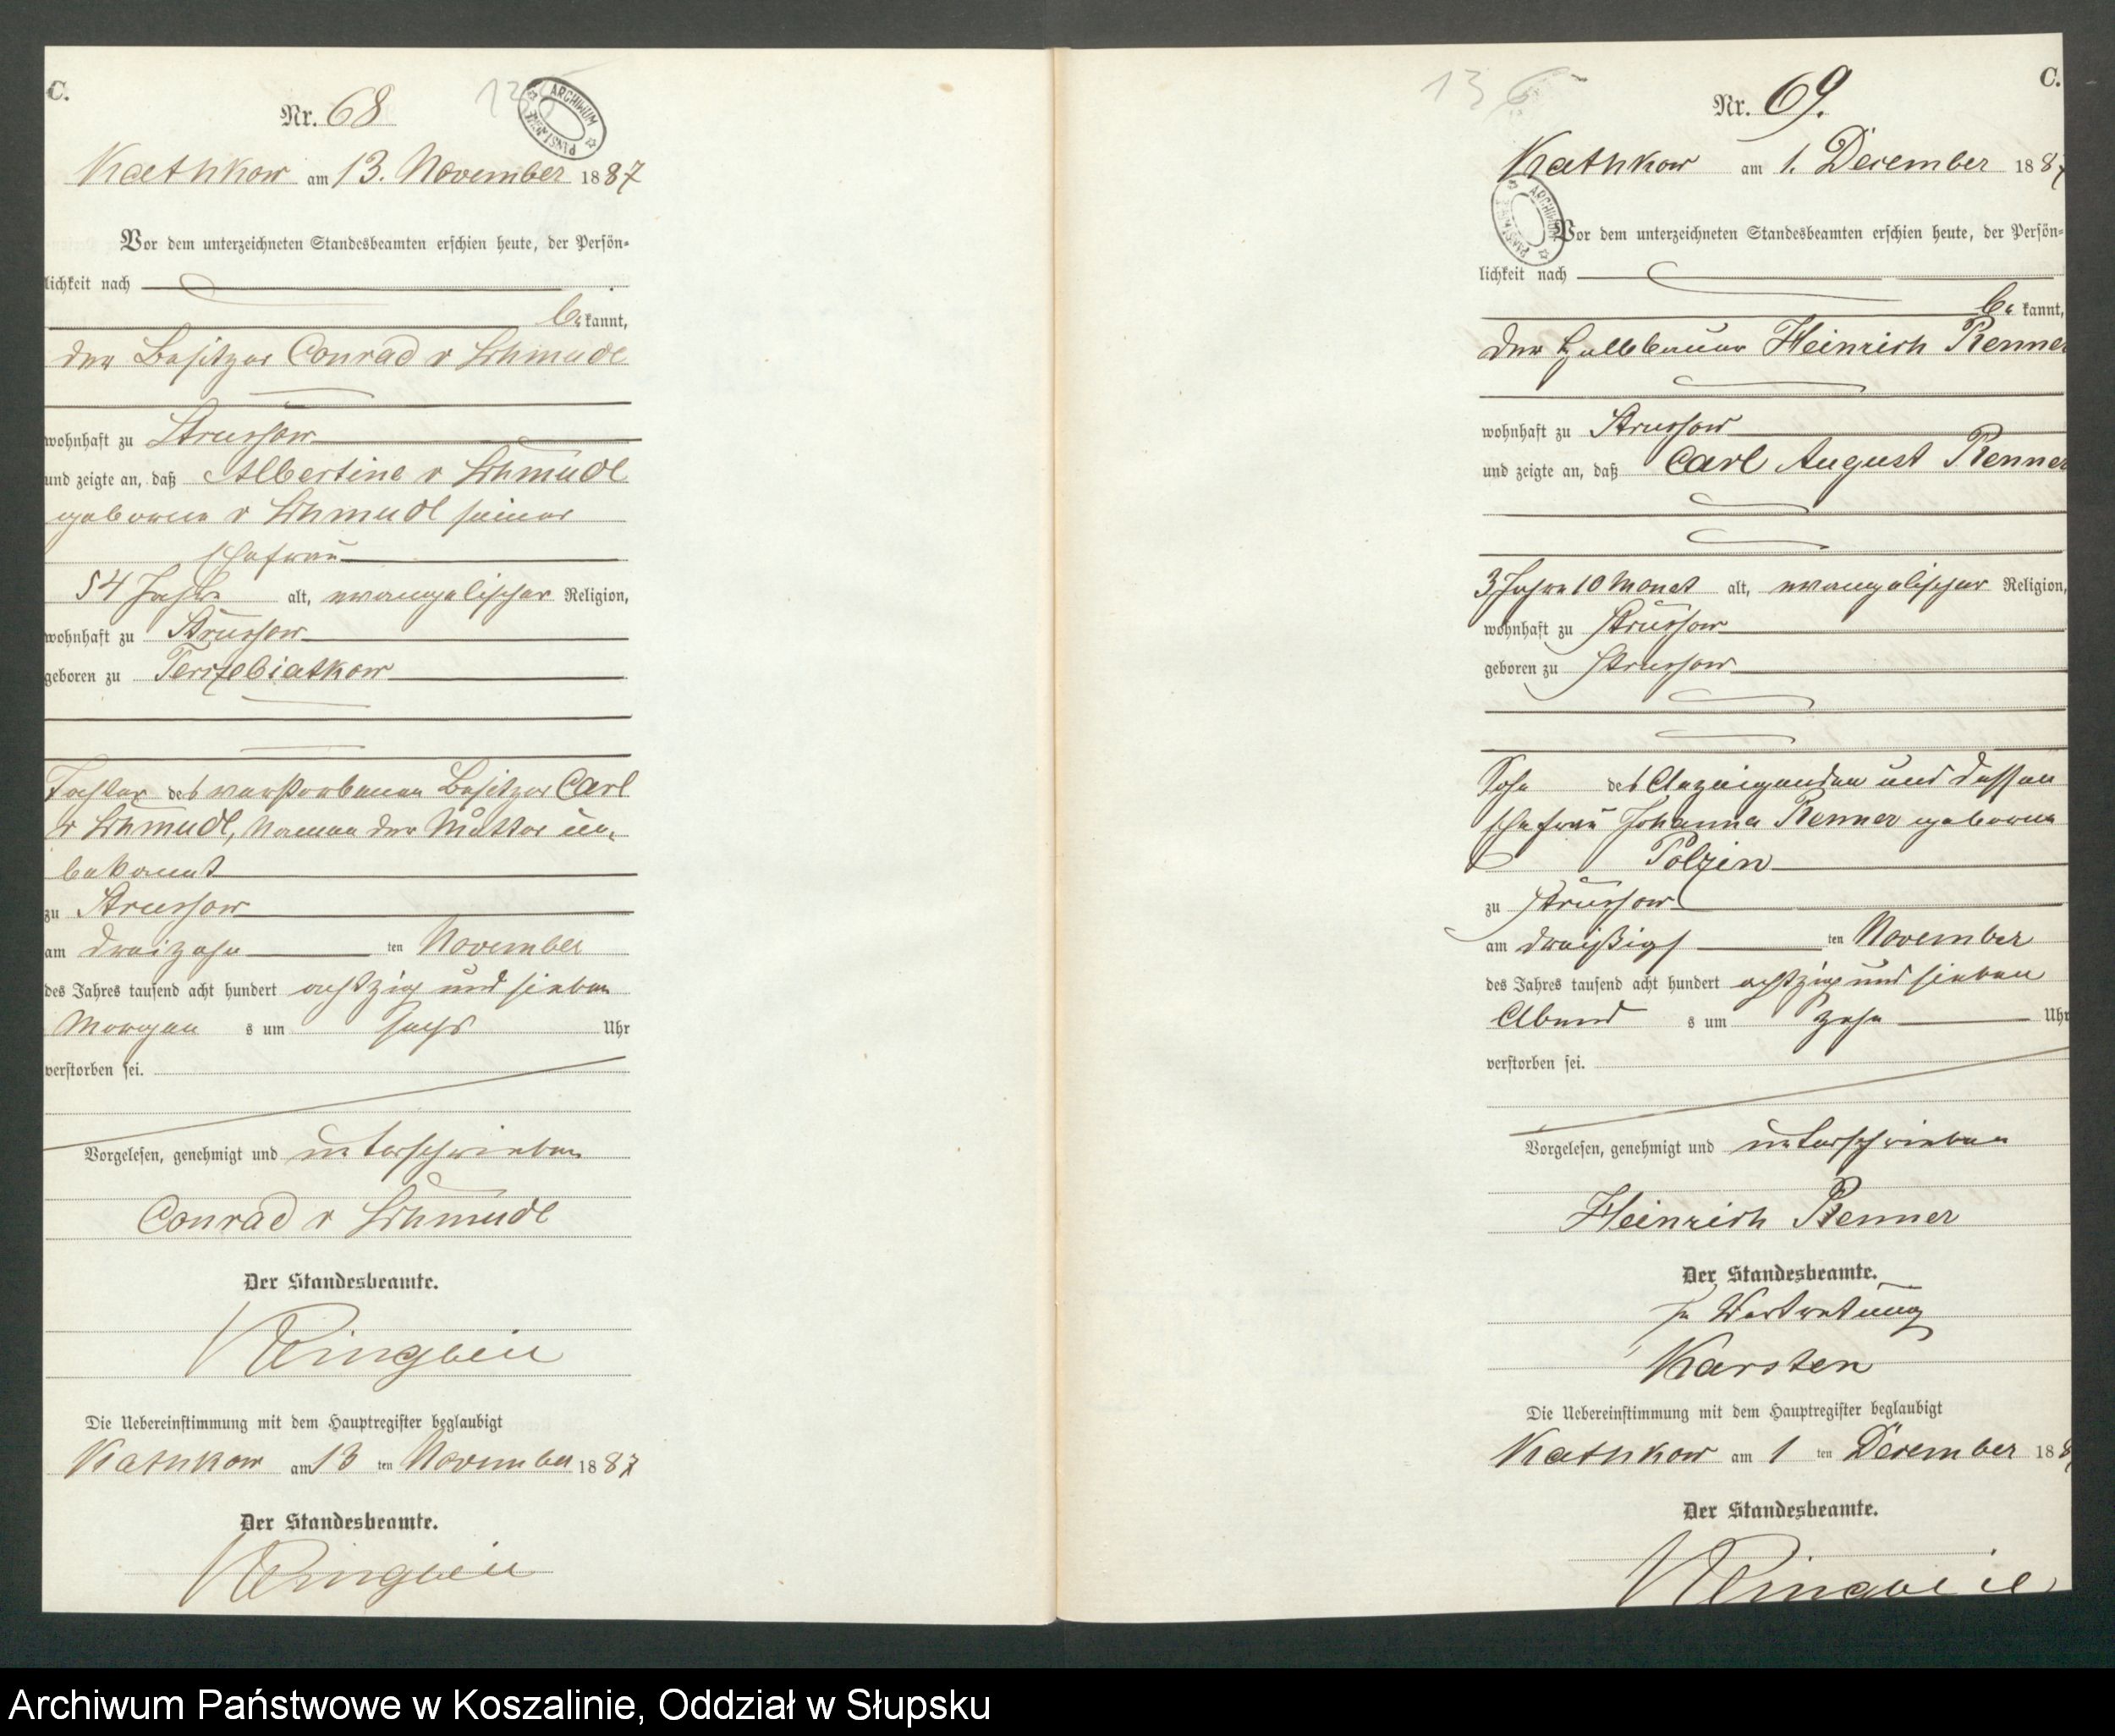 C.
Nr. 68
ARCHIWUM
Kathkow am 13. November 1887
Vor dem unterzeichneten Standesbeamten erschien heute, der Persön-
lichkeit nach
bekannt,
der Besitzer Conrad v Schmude
wohnhaft zu Strussow
und zeigte an, daß Albertine v Schmude
geborne v Schmude seiner
Ehefrau
54 Jahre alt, evangelischer Religion,
wohnhaft zu Strussow
geboren zu Terrzebiatkow
Tochter des verstorbenen Besitzer Carl
v Schmude, Namen der Mutter un-
bekannt
zu Strussow
am dreizehn ten November
des Jahres tausend acht hundert achtzig und sieben
Morgen s um sechs Uhr
verstorben sei.
Vorgelesen, genehmigt und unterschrieben
Conrad v Schmude
Der Standesbeamte.
Die Uebereinstimmung mit dem Hauptregister beglaubigt
Kathkow am 13 ten November 1887
Der Standesbeamte.
C.
Nr. 69.
ARCHIWUM
Kathkow am 1. December 188
Vor dem unterzeichneten Standesbeamten erschien heute, der Persön-
lichkeit nach
bekannt,
der Halbbauer Heinrich Renner
wohnhaft zu Strussow
und zeigte an, daß Carl August Renner
3 Jahre 10 Monat alt, evangelischer Religion,
wohnhaft zu Strussow
geboren zu Strussow
Sohn des Anzeigenden und dessen
Ehefrau Johanna Renner geborne
Polzin
zu Strussow
am dreißigs ten November
des Jahres tausend acht hundert achtzig und sieben
Abend s um zehn Uhr
verstorben sei.
Vorgelesen, genehmigt und unterschrieben
Heinrich Renner
Der Standesbeamte.
In Vertretung
Karsten
Die Uebereinstimmung mit dem Hauptregister beglaubigt
Kathkow am 1 ten December 188
Der Standesbeamte.
Archiwum Państwowe w Koszalinie, Oddział w Słupsku